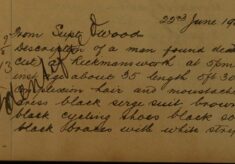 22nd June 19
From Supt Wood
Description of a man found dead
Cut at Rickmansworth at 5pm
inst age about 35 length 5ft 30
complexion hair and moustache
dress black serge suit brown
black cycling shoes black so
black braces with white strip